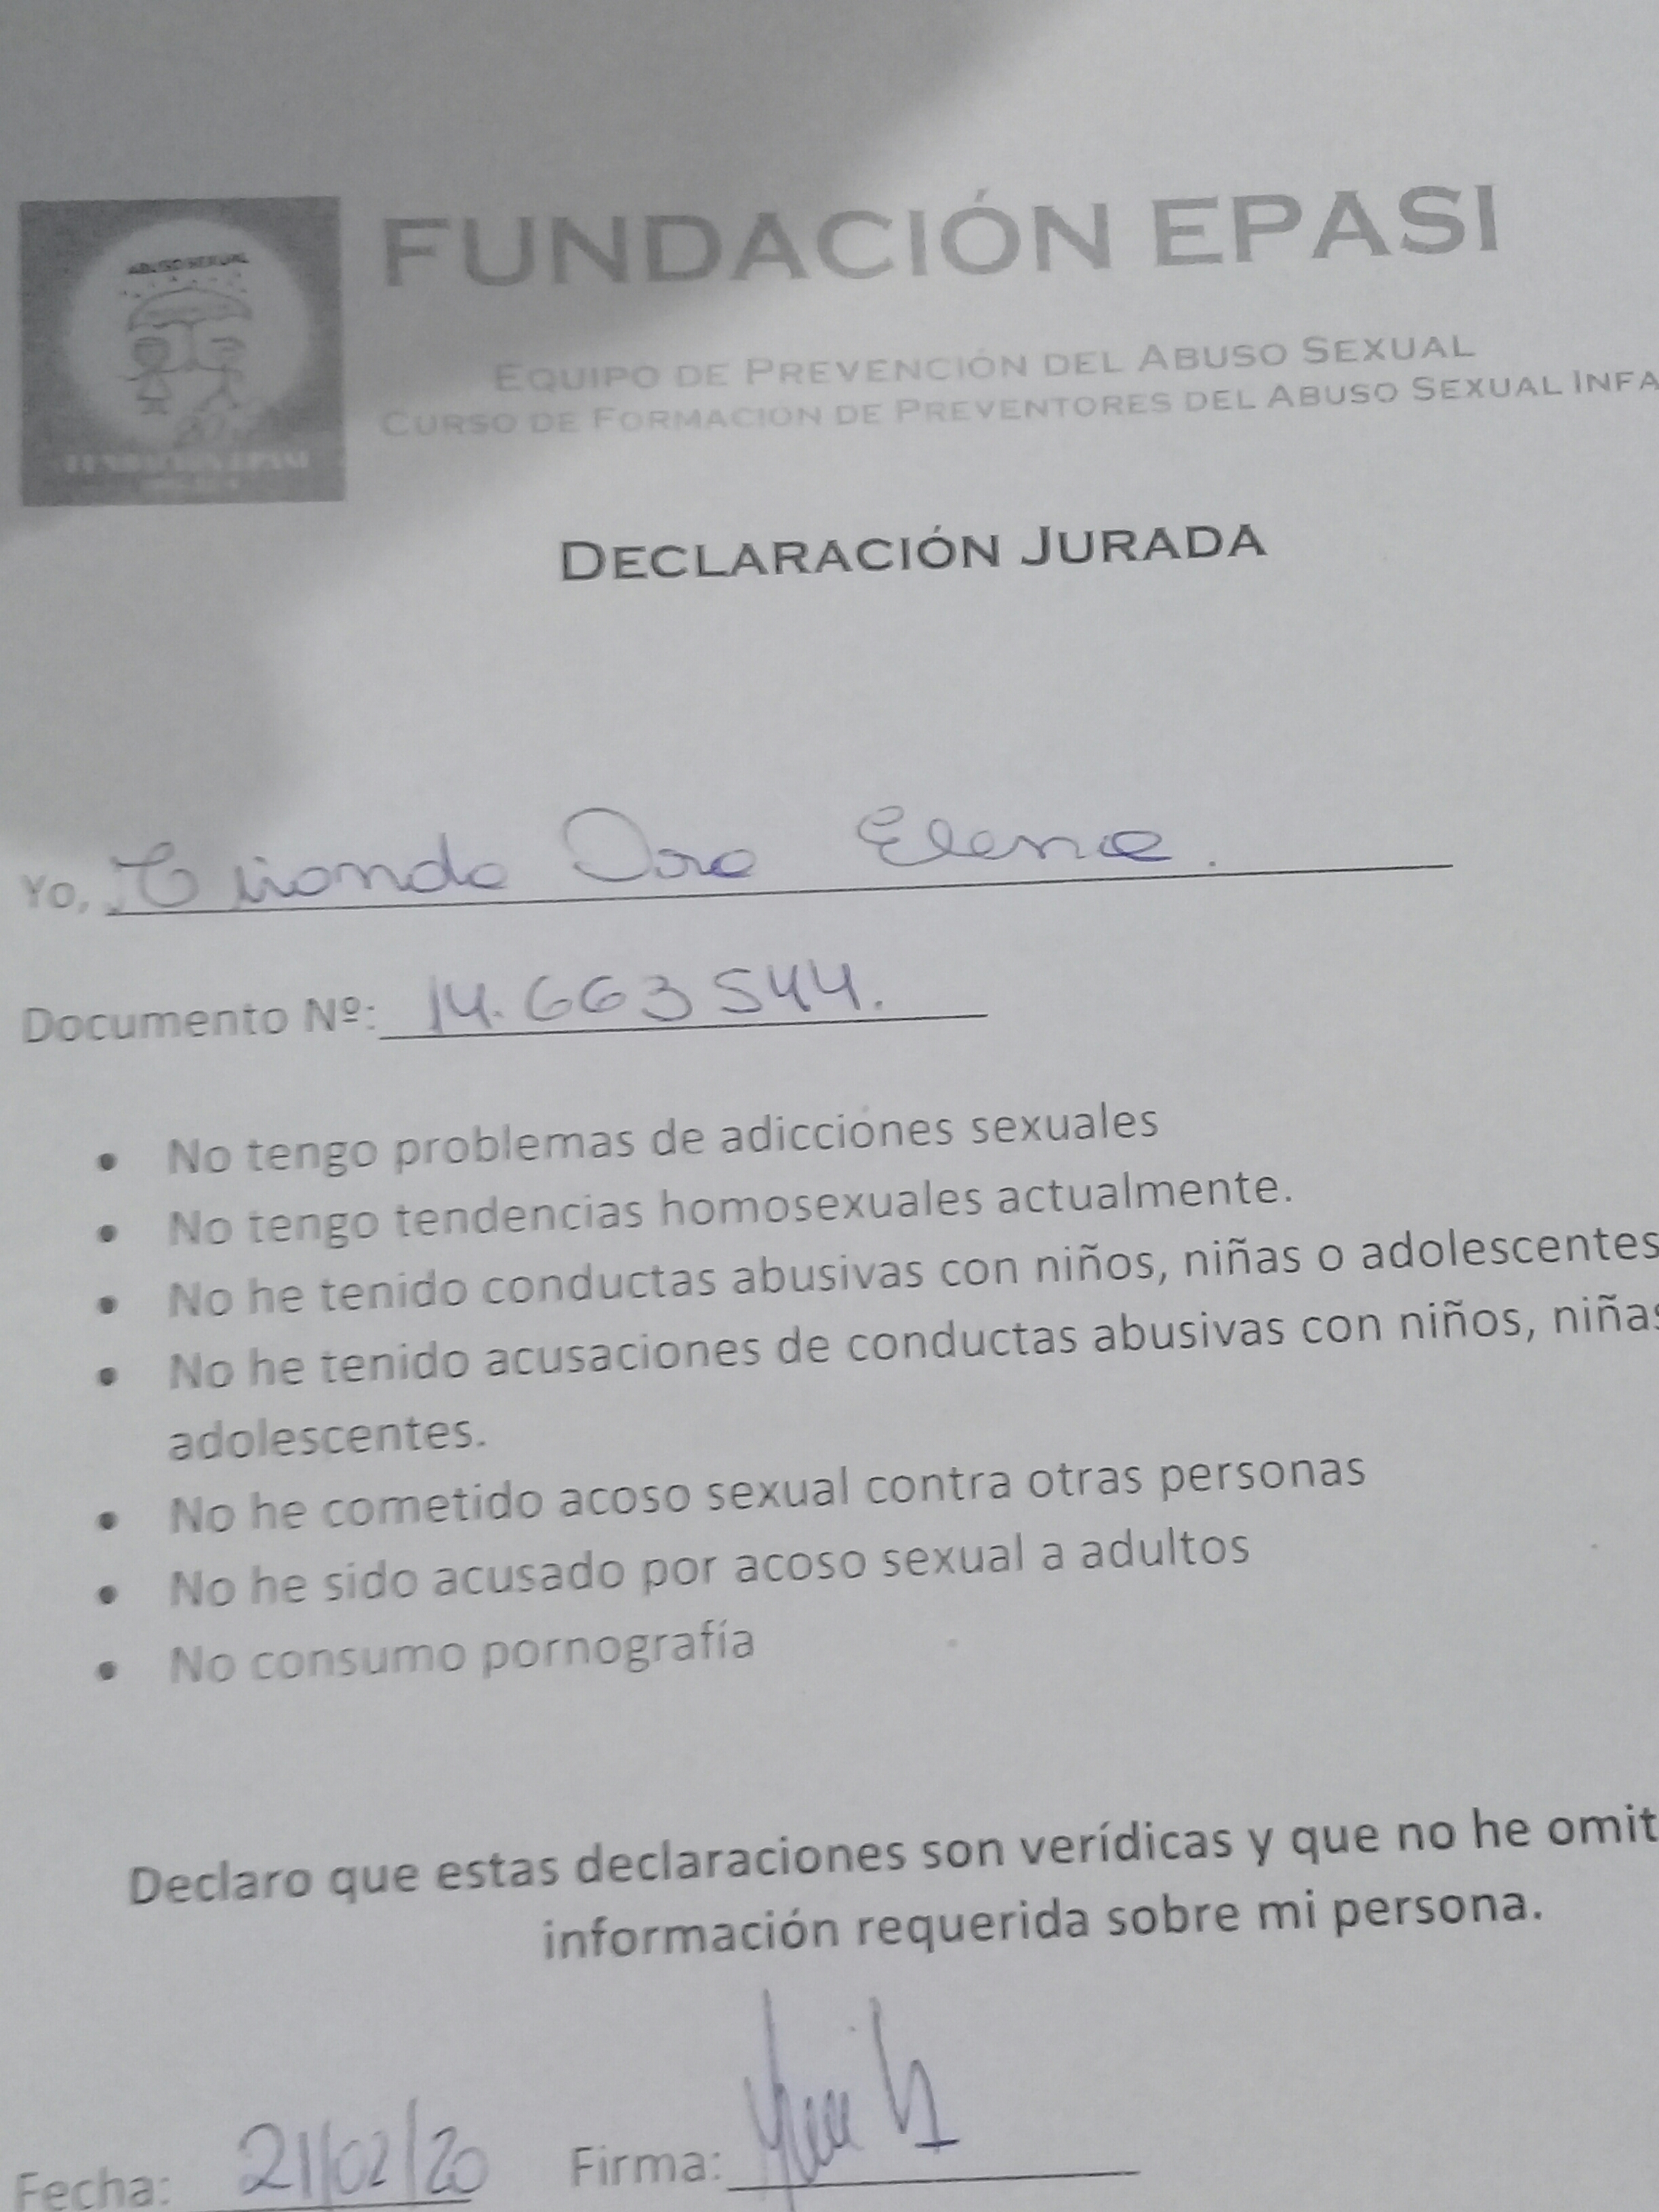 ABUSO SEXUAL
FUNDACIÓN EPASI
FUNDACIÓN EPASI
EQUIPO DE PREVENCIÓN DEL ABUSO SEXUAL
CURSO DE FORMACIÓN DE PREVENTORES DEL ABUSO SEXUAL INFA
DECLARACIÓN JURADA
Yo, Elena.
Documento Nº: 14.663544.
• No tengo problemas de adicciónes sexuales
• No tengo tendencias homosexuales actualmente.
• No he tenido conductas abusivas con niños, niñas o adolescentes
• No he tenido acusaciones de conductas abusivas con niños, niñas
adolescentes.
• No he cometido acoso sexual contra otras personas
• No he sido acusado por acoso sexual a adultos
• No consumo pornografía
Declaro que estas declaraciones son verídicas y que no he omit
información requerida sobre mi persona.
Fecha: 21/02/20 Firma: